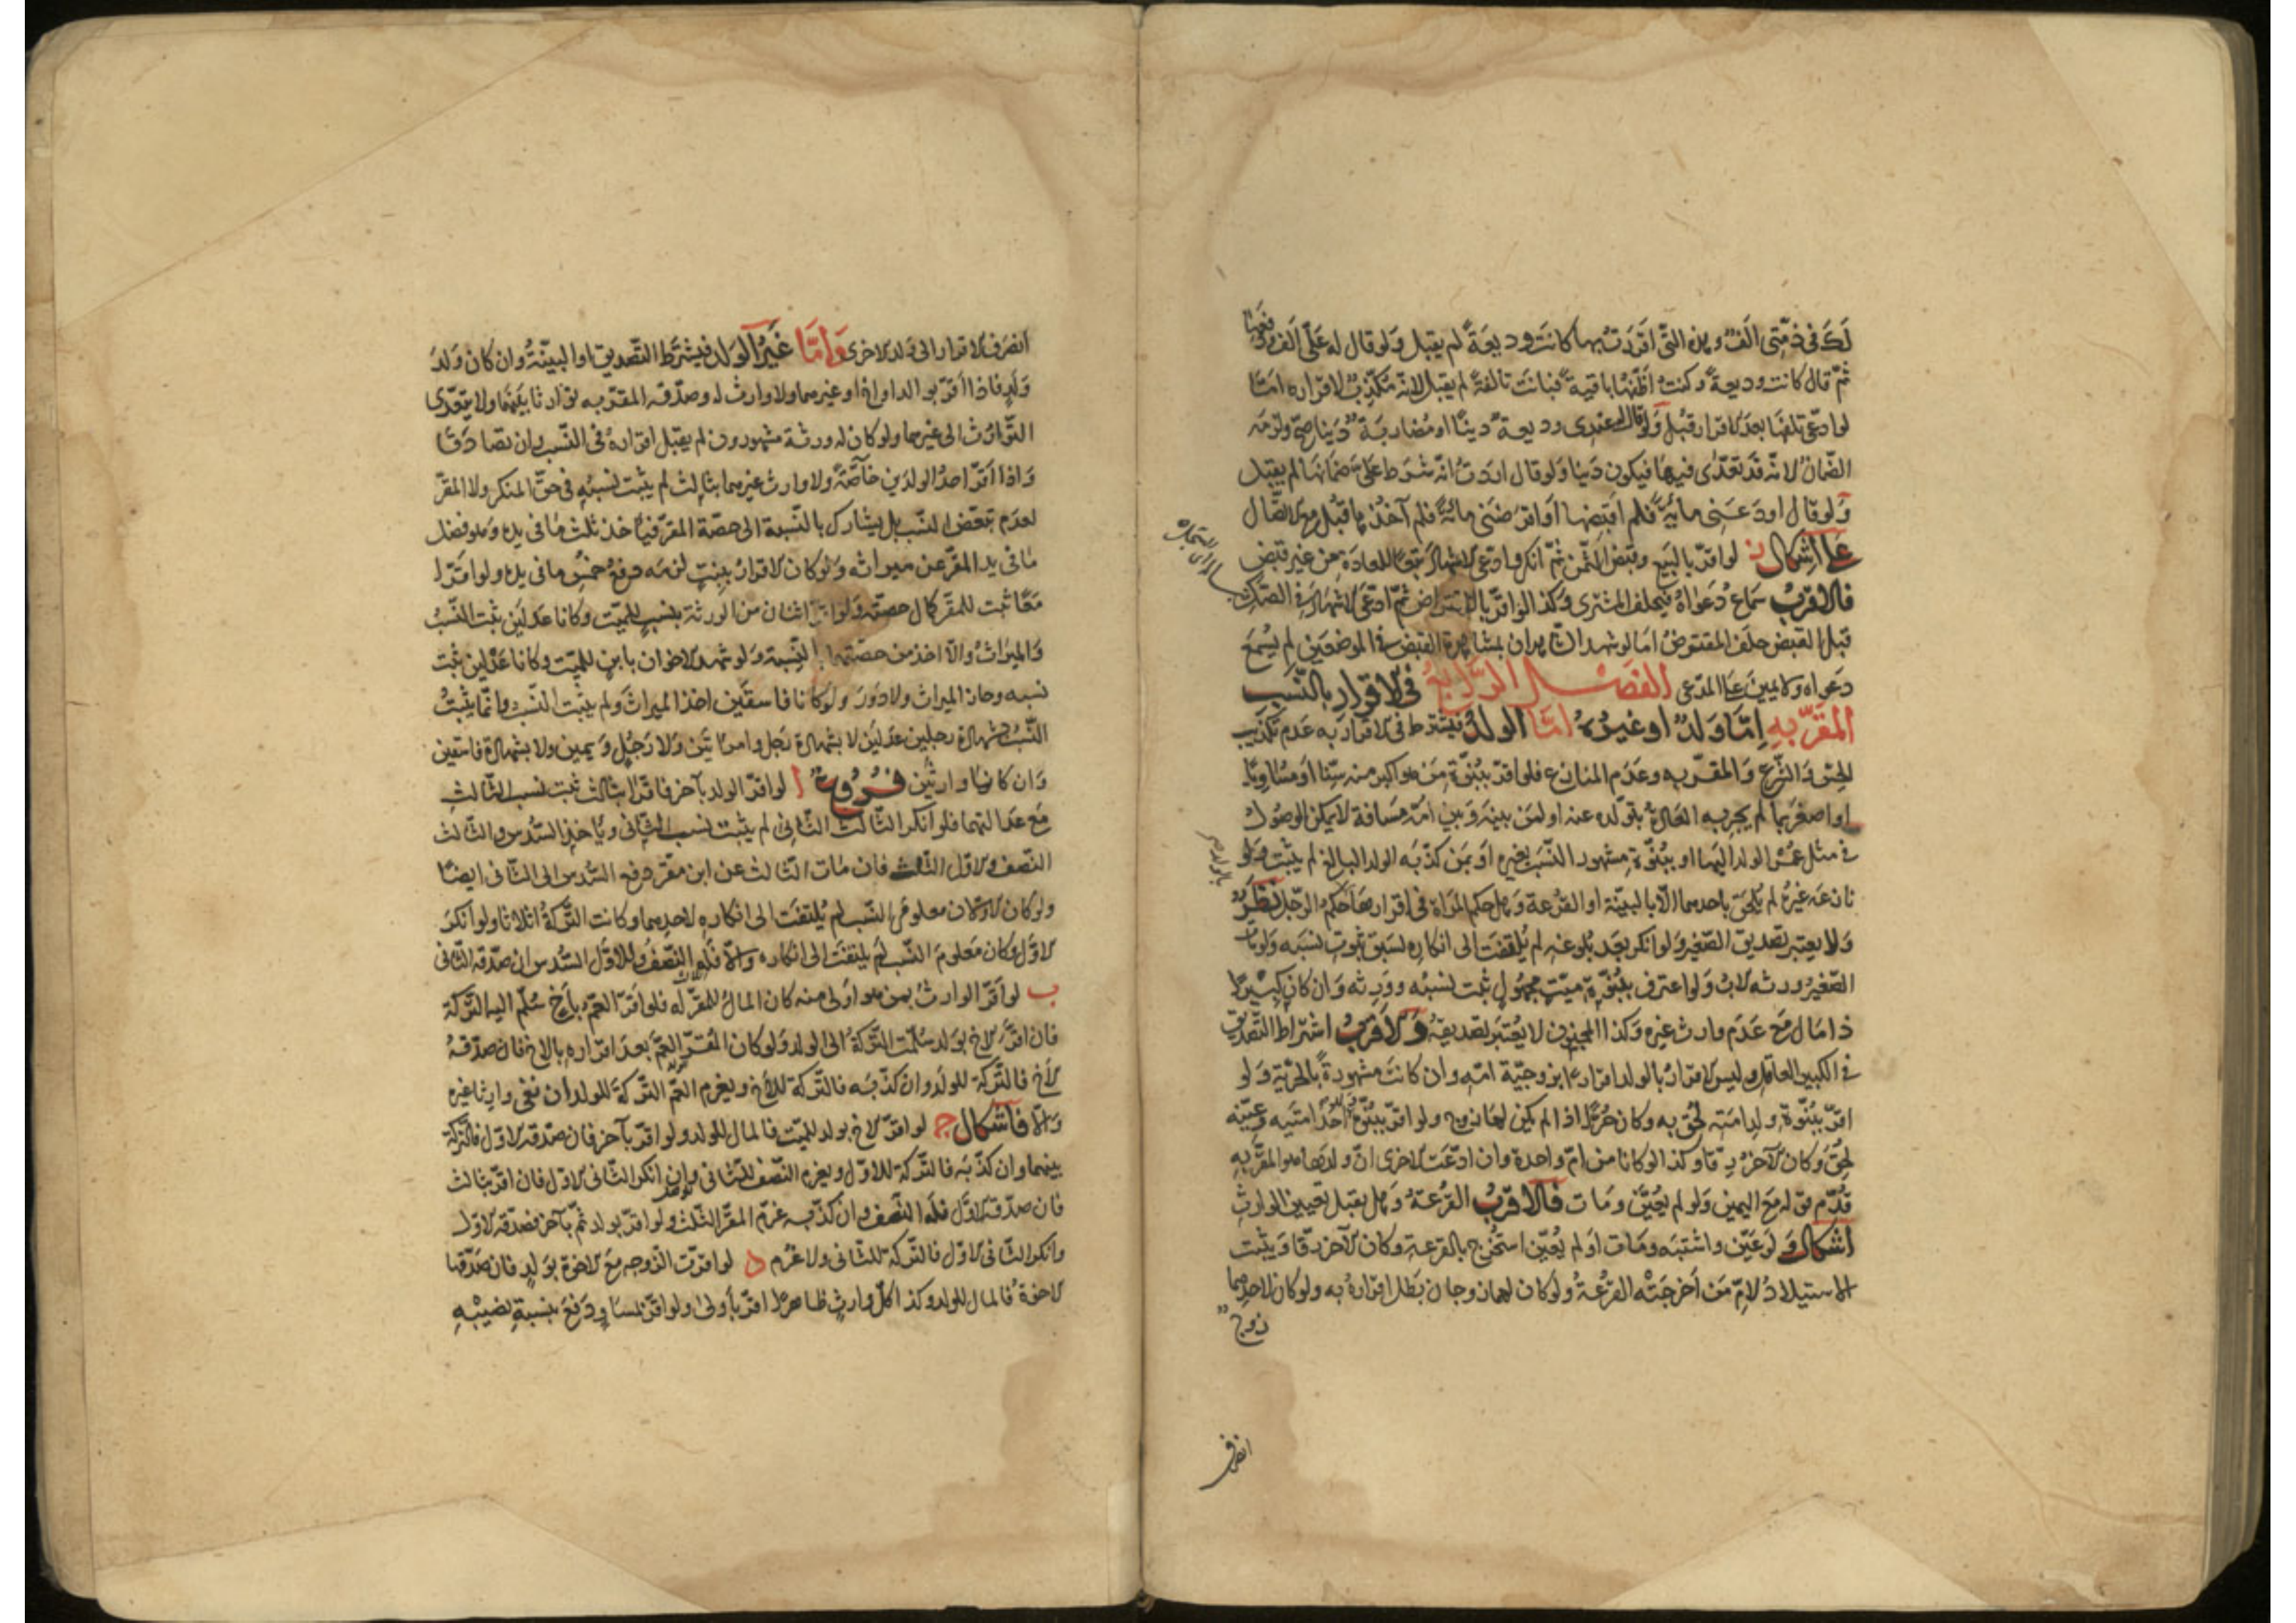 لك فى ذمتى الف وهذه التى اقررت بها كانت وديعة لم يقبل ولو قال له على الف ودفعها
ثم قال كانت وديعة وكنت اظنها باقية فبانت تالفة لم يقبل لانه مكذب لاقراره امّا
لو ادعى تلفها بعد الاقرار قبل ولو قال له عندى وديعة دينا او مضاربة دينا صح ولزمه
الضمان لانه قد تعدى فيها فيكون دينا ولو قال اردت انه شرط على ضمانها لم يقبل
ولو قال اودعنى مائة فلم اقبضها او اقرضنى مائة فلم آخذها قبل مع الاتصال
على اشكال ن لو اقر بالبيع وقبض الثمن ثم انكر وادعى الاشهاد تبعا للعادة من غير قبض
فالاقرب سماع دعواه فيحلف المشترى وكذا لو اقر بالاقتراض ثم ادعى الاشهاد فى الصك
قبل القبض حلف المقترض اما لو شهد الشاهدان بمشاهدة القبض فى الموضعين لم يسمع
دعواه ولا يمين على المدعى الفصل الرابع فى الاقرار بالنسب
المقر به امّا ولد او غيره امّا الولد فيشترط فى الاقرار به عدم تكذيب
الحس والشرع والمقر به وعدم المنازع فلو اقر ببنوة من هو اكبر منه سنا او مساويا
او اصغر بما لم يجر به العادة بتولده عنه او لمن بينه وبين امه مسافة لا يمكن الوصول
فى مثل عمر الولد اليها او ببنوة مشهور النسب بغيره او بمن كذبه الولد البالغ لم يثبت ولو
نازعه غيره لم يلحق باحدهما الا بالبينة او القرعة وهل حكم المراة فى اقرارها حكم الرجل نظر
ولا يعتبر تصديق الصغير ولو انكر بعد بلوغه لم يلتفت الى انكاره لسبق ثبوت نسبه ولو مات
الصغير ورثه الاب ولو اعترف ببنوة ميت مجهول ثبت نسبه وورثه وان كان كبيرا
ذا مال مع عدم وارث غيره وكذا المجنون لا يعتبر تصديقه والاقرب اشتراط التصديق
فى الكبير العاقل وليس الاقرار بالولد اقرارا بزوجية امه وان كانت مشهورة بالحرية ولو
اقر ببنوة ولد امته لحق به وكان حرا اذا لم يكن لها زوج ولو اقر ببنوة ولد احد امتيه وعينه
لحق وكان الآخر رقا وكذا لو كانا من ام واحدة وان ادعت الاخرى ان ولدها هو المقر به
قدم قوله مع اليمين ولو لم يعين ومات فالاقرب القرعة وهل يقبل تعيين الوارث
اشكال ولو عين واشتبه ومات او لم يعين استخرج بالقرعة وكان الآخر رقا ويثبت
الاستيلاد لام من اخرجته القرعة ولو كان لهما زوجان بطل اقراره به ولو كان لاحدهما
زوج
انصرف
انصرف الاقرار الى ولد الاخرى وامّا غير الولد فيشترط التصديق او البينة وان كان ولد
ولد فاذا اقر بوالد او اخ او غيرهما ولا وارث له وصدقه المقر به توارثا بينهما ولا يتعدى
التوارث الى غيرهما ولو كان له ورثة مشهورون لم يقبل اقراره فى النسب وان تصادقا
واذا اقر احد الولدين خاصة ولا وارث غيرهما بثالث لم يثبت نسبه فى حق المنكر ولا المقر
لعدم تبعض النسب بل يشارك بالنسبة الى حصة المقر فيأخذ ثلث ما فى يده وهو فضل
ما فى يد المقر عن ميراثه ولو كان الاقرار ببنت لزمه دفع خمس ما فى يده ولو اقرا
معا ثبت للمقر كمال حصته ولو اقر اثنان من الورثة بنسب للميت وكانا عدلين ثبت النسب
والميراث والا اخذ من حصتهما بالنسبة ولو شهد الاخوان بابن للميت وكانا عدلين ثبت
نسبه وحاز الميراث ولا دور ولو كانا فاسقين اخذ الميراث ولم يثبت النسب وانما يثبت
النسب بشهادة رجلين عدلين لا بشهادة رجل وامراتين ولا رجل ويمين ولا بشهادة فاسقين
وان كانوا وارثين فروع ا لو اقر الولد بآخر فاقرا بثالث ثبت نسب الثالث
مع عدالتهما فلو انكر الثالث الثانى لم يثبت نسب الثانى وياخذ السدس والثالث
النصف والاول الثلث فان مات الثالث عن ابن مقر دفع السدس الى الثانى ايضا
ولو كان الاولان معلومى النسب لم يلتفت الى انكاره لاحدهما وكانت التركة اثلاثا ولو انكر
الاول وكان معلوم النسب لم يلتفت الى انكاره والا فله النصف وللاول السدس ان صدقه الثانى
ب لو اقر الوارث بمن هو اولى منه كان المال للمقر له فلو اقر العم باخ سلم اليه التركة
فان اقر الاخ بولد سلمت التركة الى الولد ولو كان المقر العم بعد اقراره بالاخ فان صدقه
الاخ فالتركة للولد وان كذبه فالتركة للاخ ويغرم العم التركة للولد ان نفى وارثا غيره
والا فاشكال ج لو اقر الاخ بولد للميت فالمال للولد ولو اقر بآخر فان صدقه الاول فالتركة
بينهما وان كذبه فالتركة للاول ويغرم النصف للثانى وان انكر الثانى الاول فان اقر بثالث
فان صدقه الاول فله النصف وان كذبه غرم المقر الثلث ولو اقر بولد ثم بآخر فصدقه الاول
وانكر الثانى الاول فالتركة للثانى ولا غرم د لو اقرت الزوجه مع الاخوة بولد فان صدقها
الاخوة فالمال للولد وكذا كل وارث ظاهرا اقر باولى ولو اقر بمساو دفع بنسبة نصيبه